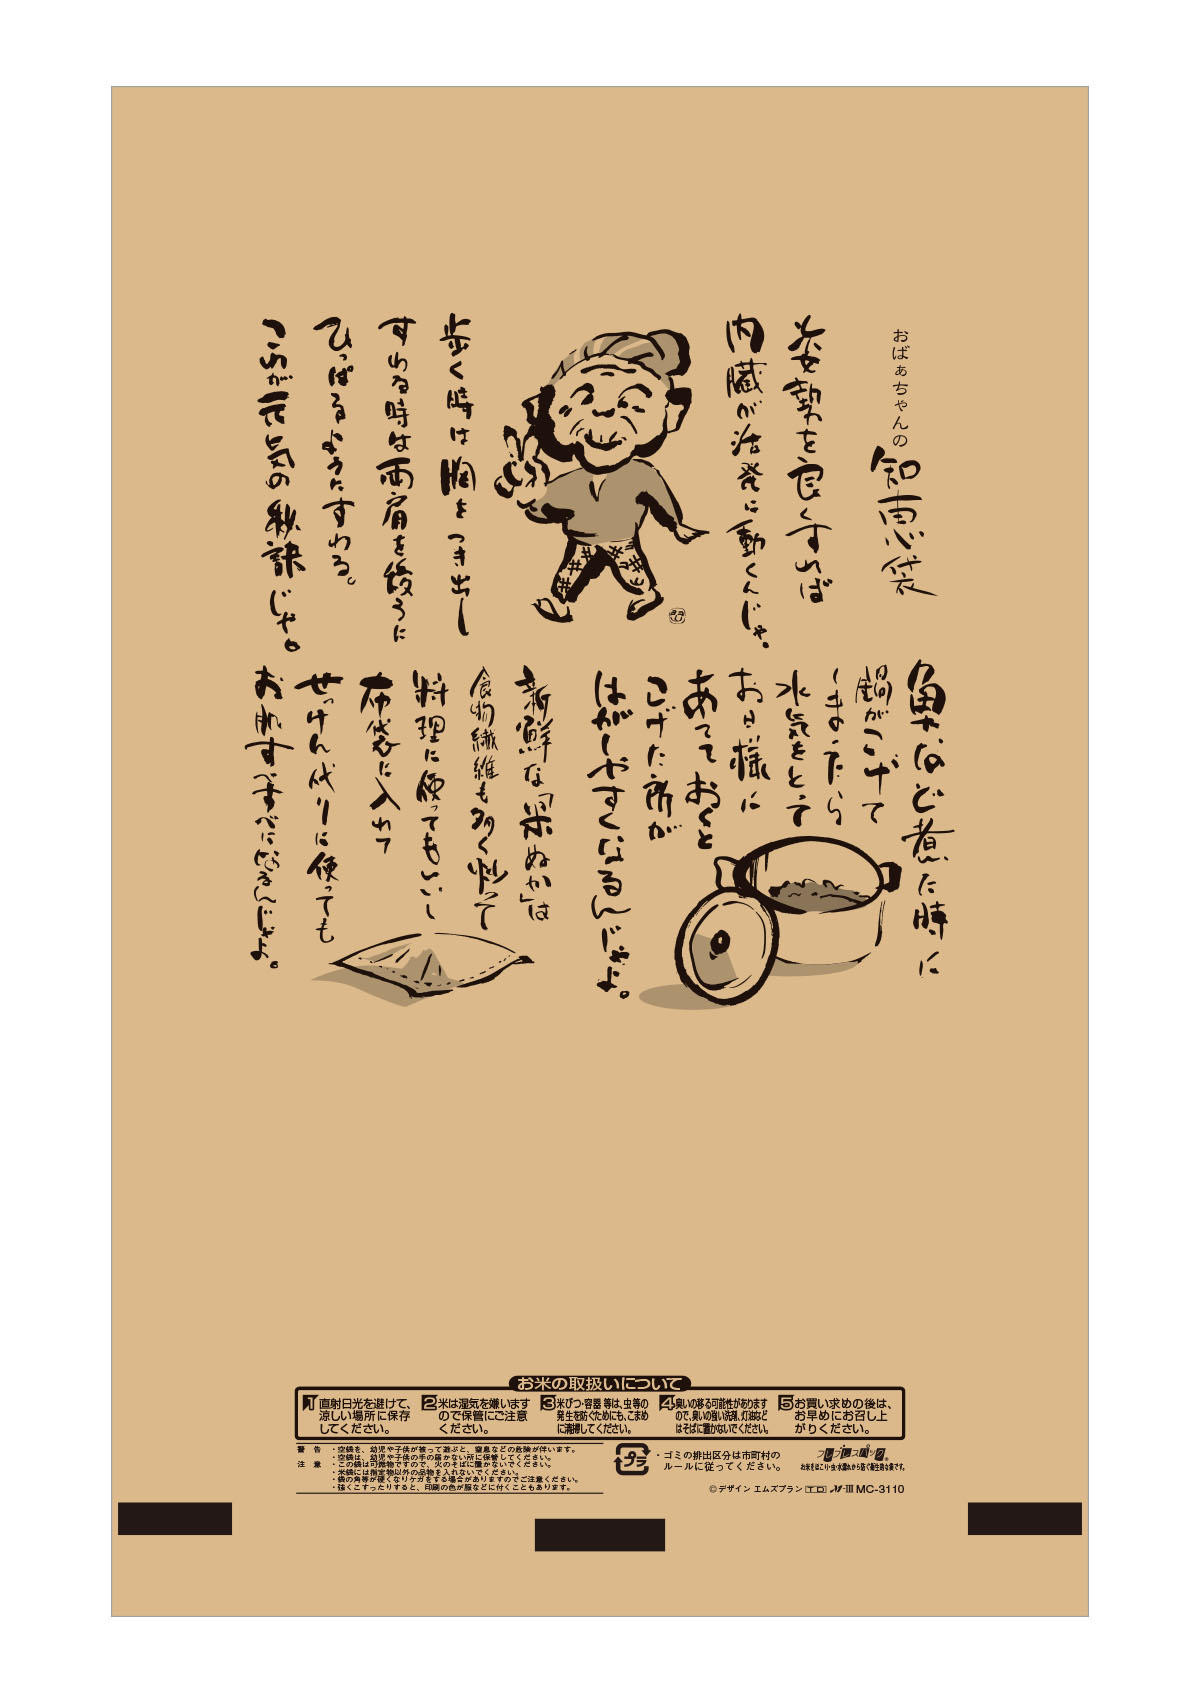 おばぁちゃんの
知恵袋
姿勢を良くすれば
内臓が活発に動くんじゃ。
歩く時は胸をつき出し
すわる時は両肩を後ろに
ひっぱるようにすわる。
これが元気の秘訣じゃ。
魚など煮た時に
鍋がこげて
しまったら
水気をとって
お日様に
あてておくと
こげた所が
はがしやすくなるんじゃよ。
新鮮な「米ぬか」は
食物繊維も多く炒って
料理に使ってもいいし
布袋に入れて
せっけん代りに使っても
お肌すべすべになるんじゃよ。
お米の取扱いについて
1 直射日光を避けて、
涼しい場所に保存
してください。
2 米は湿気を嫌います
ので保管にご注意
ください。
3 米びつ・容器 等は、虫等の
発生を防ぐためにも、こまめ
に清掃してください。
4 臭いの移る可能性があります
ので、臭いの強い洗剤、灯油など
はそばに置かないでください。
5 お買い求めの後は、
お早めにお召し上
がりください。
警 告 ・空袋を、幼児や子供が被って遊ぶと、窒息などの危険が伴います。
・空袋は、幼児や子供の手の届かない所に保管してください。
注 意 ・この袋は可燃物ですので、火のそばに置かないでください。
・米袋には指定物以外の品物を入れないでください。
・袋の角等が硬くなりケガをする場合がありますのでご注意ください。
・強くこすったりすると、印刷の色が服などに付くこともあります。
プラ
・ゴミの排出区分は市町村の
ルールに従ってください。
フレブレスパック®
お米をほこり・虫・水濡れから防ぐ衛生的な袋です。
©デザイン エムズプラン MC-3110